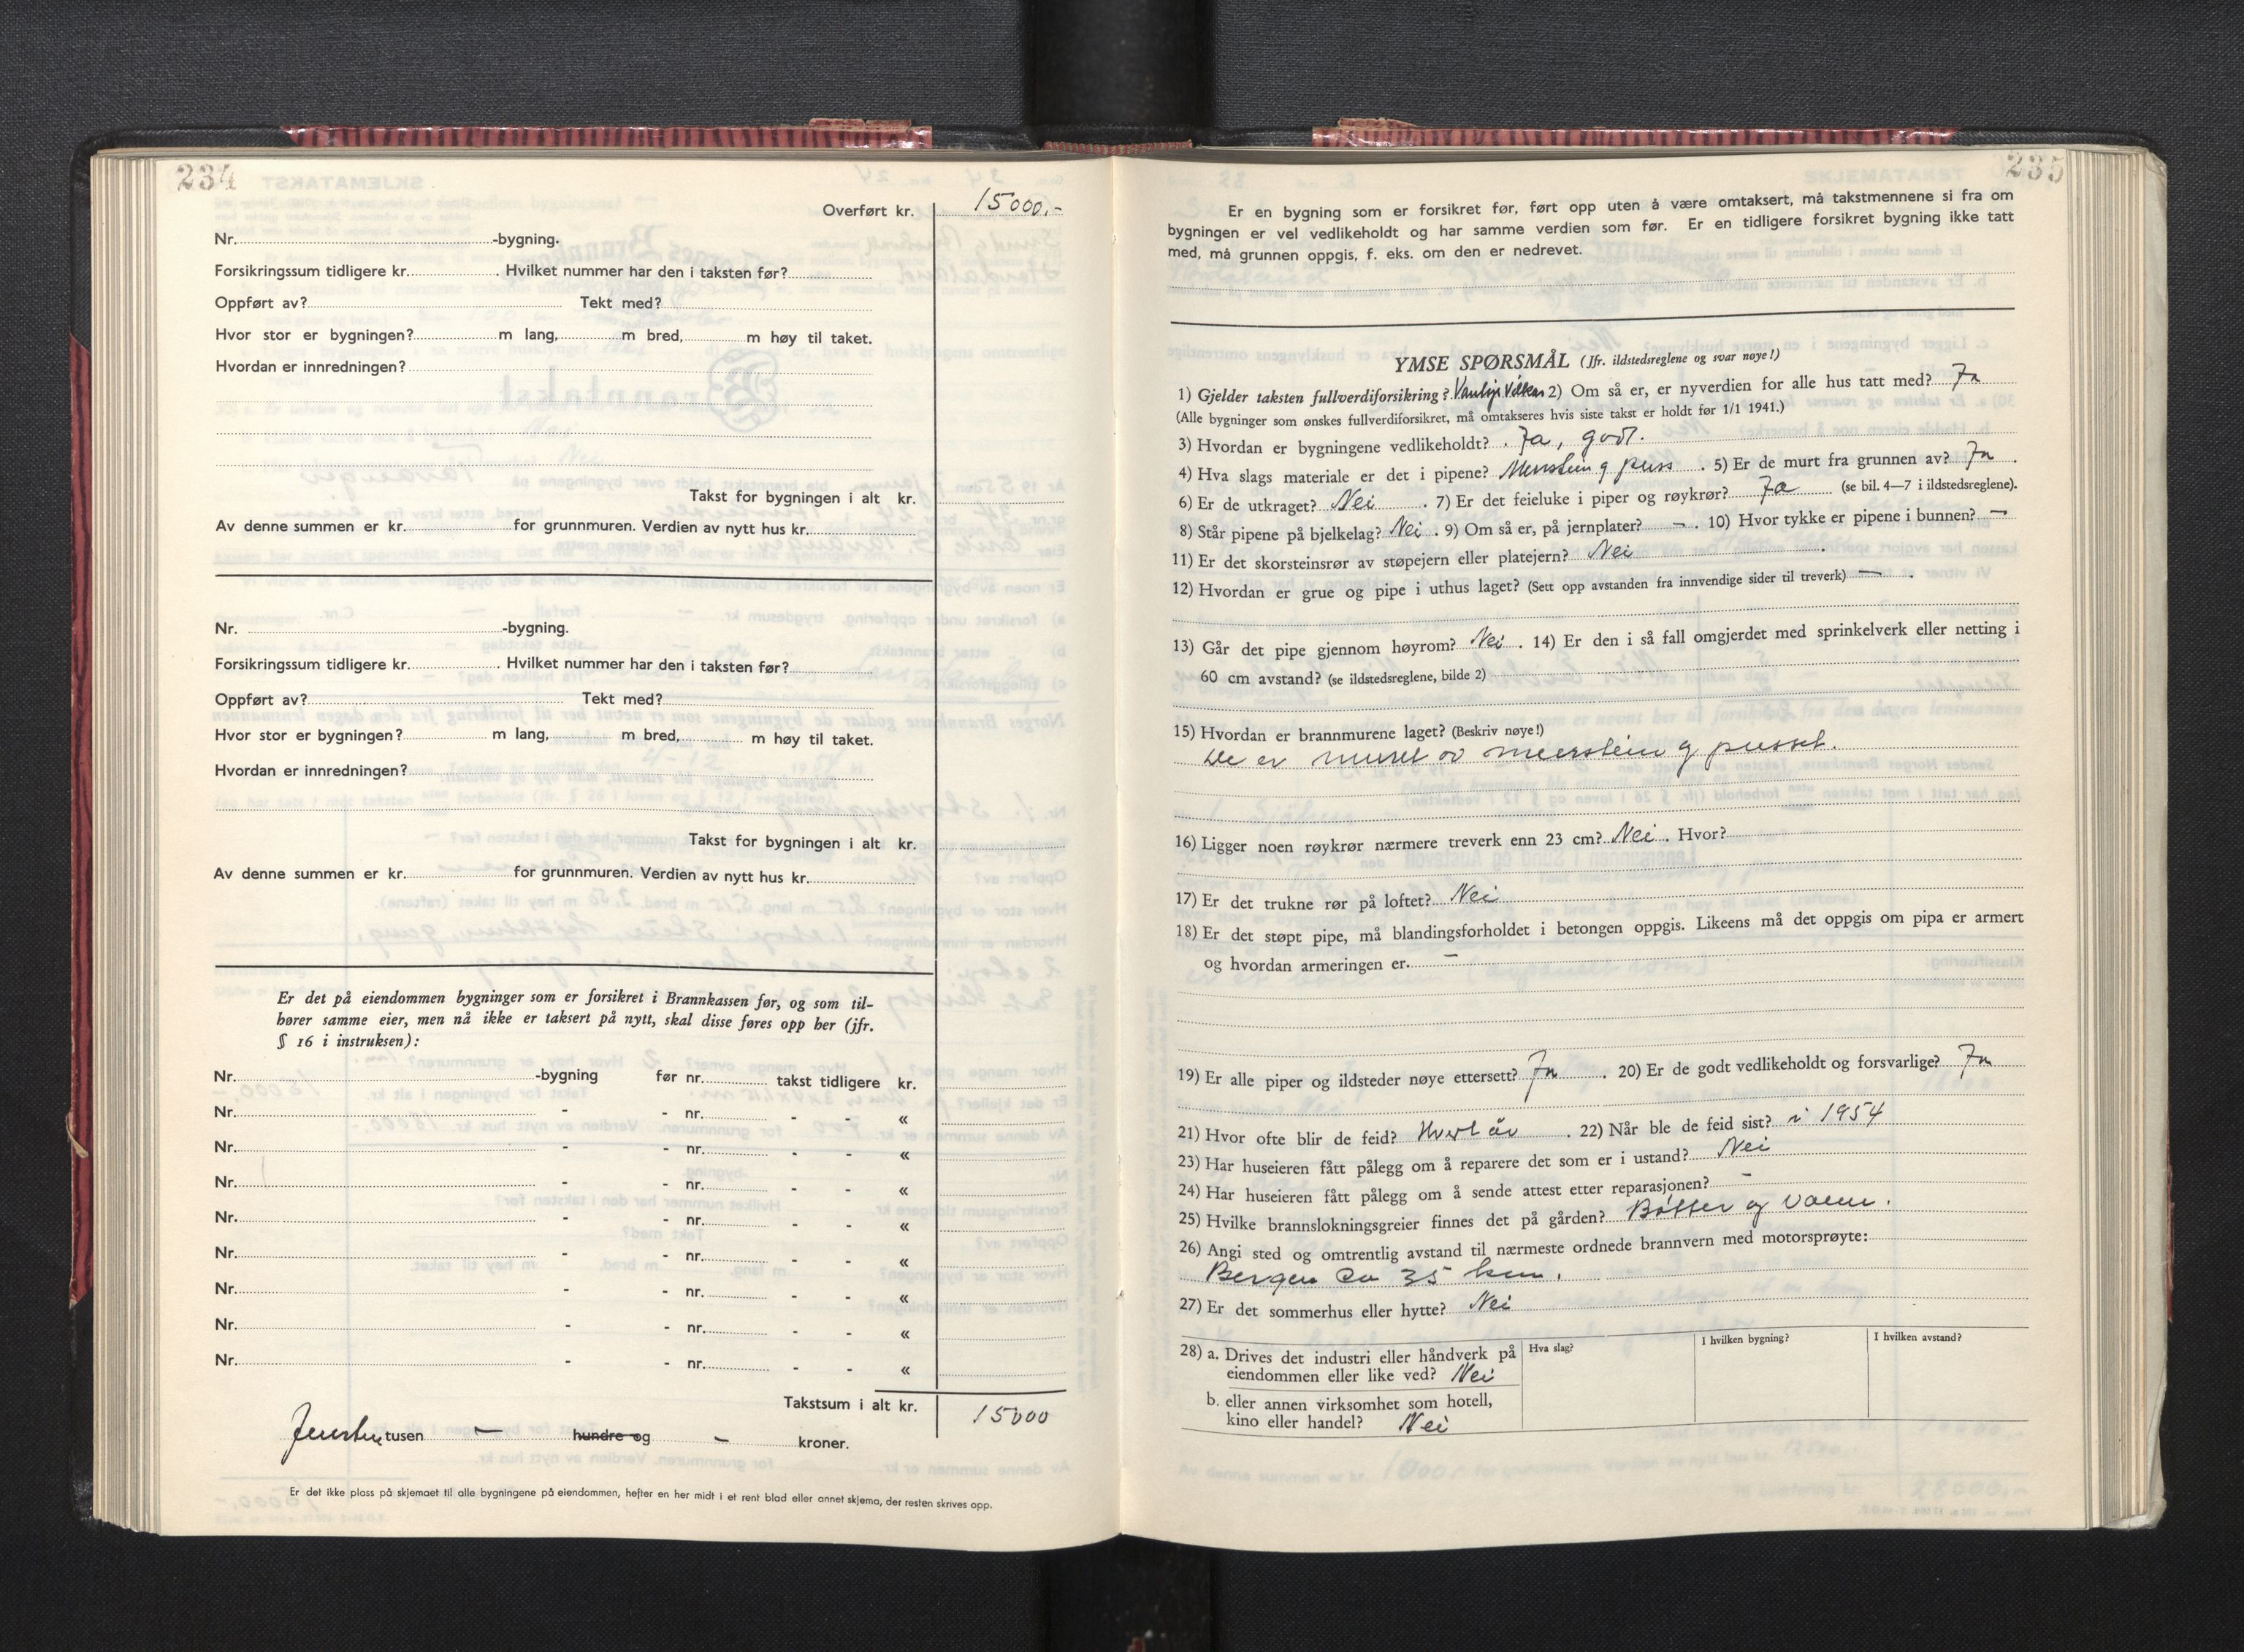 234
Overført kr. 15000,-
Nr. -bygning.
Forsikringssum tidligere kr. . Hvilket nummer har den i taksten før?
Oppført av? Tekt med?
Hvor stor er bygningen? m lang, m bred, m høy til taket.
Hvordan er innredningen?
Takst for bygningen i alt kr.
Av denne summen er kr. for grunnmuren. Verdien av nytt hus kr.
Nr. -bygning.
Forsikringssum tidligere kr. . Hvilket nummer har den i taksten før?
Oppført av? Tekt med?
Hvor stor er bygningen? m lang, m bred, m høy til taket.
Hvordan er innredningen?
Takst for bygningen i alt kr.
Av denne summen er kr. for grunnmuren. Verdien av nytt hus kr.
Er det på eiendommen bygninger som er forsikret i Brannkassen før, og som til-
hører samme eier, men nå ikke er taksert på nytt, skal disse føres opp her (jfr.
§ 16 i instruksen):
Nr. -bygning før nr. takst tidligere kr.
Nr. - - nr. - - «
Nr. - - nr. - - «
Nr. - - nr. - - «
Nr. - - nr. - - «
Nr. - - nr. - - «
Nr. - - nr. - - «
Nr. - - nr. - - «
Nr. - - nr. - - «
Takstsum i alt kr. 15000
tusen — hundre og — kroner.
Er det ikke plass på skjemaet til alle bygningene på eiendommen, hefter en her midt i et rent blad eller annet skjema, der resten skrives opp.
235
Er en bygning som er forsikret før, ført opp uten å være omtaksert, må takstmennene si fra om
bygningen er vel vedlikeholdt og har samme verdien som før. Er en tidligere forsikret bygning ikke tatt
med, må grunnen oppgis, f. eks. om den er nedrevet.
YMSE SPØRSMÅL (Jfr. ildstedsreglene og svar nøye!)
1) Gjelder taksten fullverdiforsikring? Vanlige Vilkår 2) Om så er, er nyverdien for alle hus tatt med? Ja
(Alle bygninger som ønskes fullverdiforsikret, må omtakseres hvis siste takst er holdt før 1/1 1941.)
3) Hvordan er bygningene vedlikeholdt? Ja, godt.
4) Hva slags materiale er det i pipene? Murstein og puss . 5) Er de murt fra grunnen av? Ja .
6) Er de utkraget? Nei . 7) Er det feieluke i piper og røykrør? Ja (se bil. 4—7 i ildstedsreglene).
8) Står pipene på bjelkelag? Nei . 9) Om så er, på jernplater? — . 10) Hvor tykke er pipene i bunnen? —
11) Er det skorsteinsrør av støpejern eller platejern? Nei .
12) Hvordan er grue og pipe i uthus laget? (Sett opp avstanden fra innvendige sider til treverk) — .
13) Går det pipe gjennom høyrom? Nei . 14) Er den i så fall omgjerdet med sprinkelverk eller netting i
60 cm avstand? (se ildstedsreglene, bilde 2)
15) Hvordan er brannmurene laget? (Beskriv nøye!)
De er muret av murstein og pusset.
16) Ligger noen røykrør nærmere treverk enn 23 cm? Nei . Hvor?
17) Er det trukne rør på loftet? Nei
18) Er det støpt pipe, må blandingsforholdet i betongen oppgis. Likeens må det oppgis om pipa er armert
og hvordan armeringen er. —
19) Er alle piper og ildsteder nøye ettersett? Ja . 20) Er de godt vedlikeholdt og forsvarlige? Ja
21) Hvor ofte blir de feid? Hvert år . 22) Når ble de feid sist? i 1954
23) Har huseieren fått pålegg om å reparere det som er i ustand? Nei
24) Har huseieren fått pålegg om å sende attest etter reparasjonen? —
25) Hvilke brannslokningsgreier finnes det på gården? Bøtter og vann.
26) Angi sted og omtrentlig avstand til nærmeste ordnede brannvern med motorsprøyte:
Bergen ca 35 km.
27) Er det sommerhus eller hytte? Nei
28) a. Drives det industri eller håndverk på eiendommen eller like ved? Nei
Hva slag?
I hvilken bygning?
I hvilken avstand?
b. eller annen virksomhet som hotell,
kino eller handel? Nei